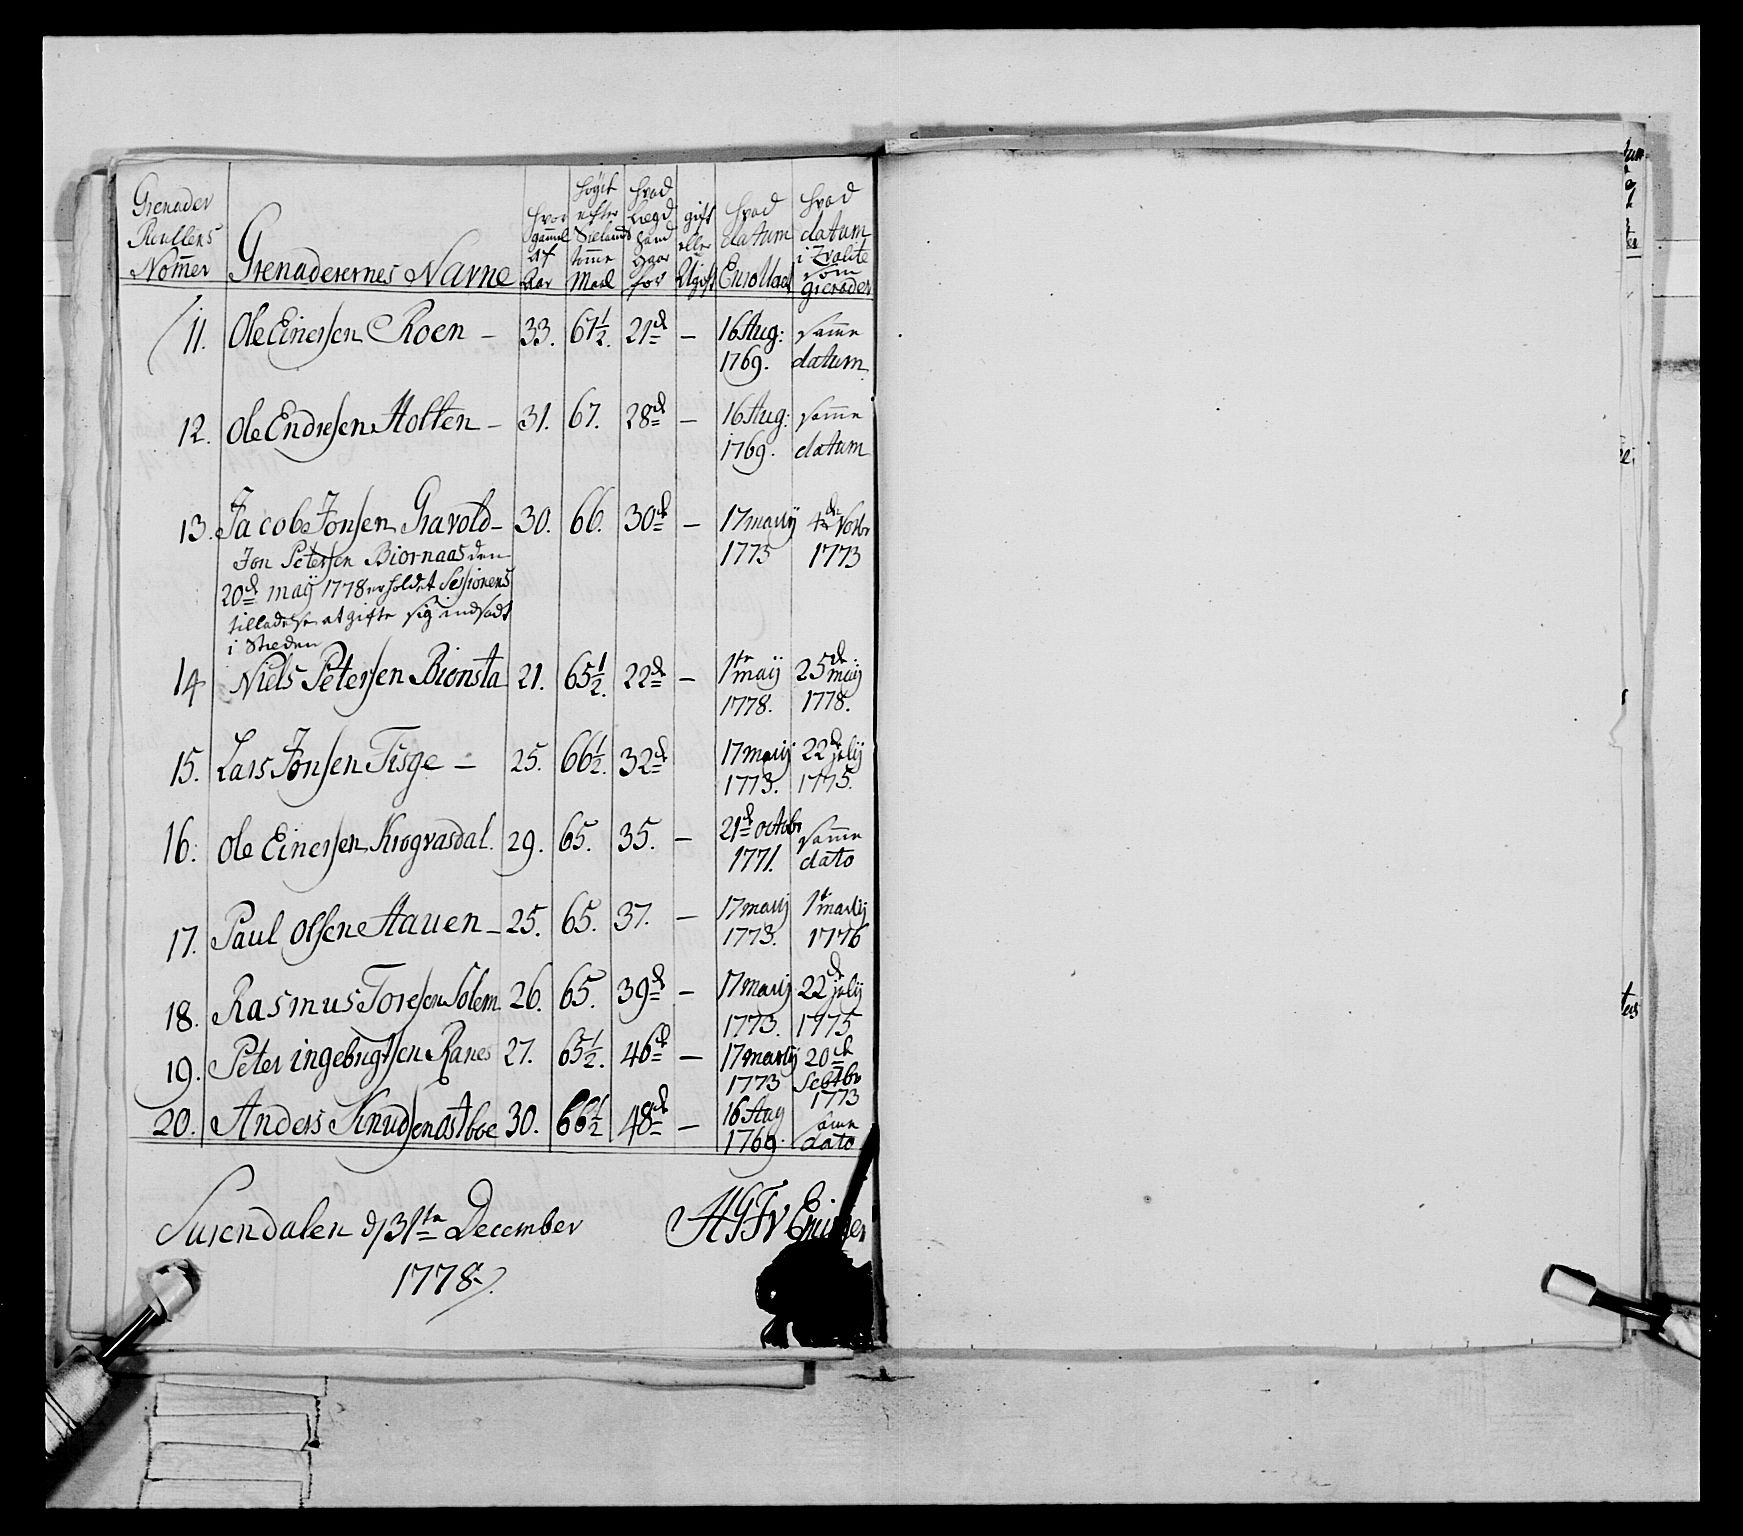 Grenader Roullens Nom̄er | Grenaderernes Navne | hvor gam̄el Af Aar | høyit efter Siellands tom̄e Maal | hvad Lægd hand staar for | gift eller Ugift | hvad datum Enrollert | hvad datum i Qvalite som grenader
11. Ole Einersen Roen – 33. 67½. 21de – 16 Aug: 1769. sam̄e datum.
12. Ole Endresen Holten – 31. 67. 28de – 16 Aug: 1769. sam̄e datum
13. Jacob Jonsen Gravold – 30. 66. 30de – 17 martij 1773 4de Novbr 1773
Jon Petersen Biornaas den
20de maij 1778 erholdet Sessionens
tilladelse at gifte sig indsadt
i Steden
14 Niels Petersen Bionsta 21. 65½. 22de – 1te maij 1778. 25de maij 1778.
15. Lars Jonsen Tisge – 25. 66½. 32de 17 martij 1773. 22de julij 1775.
16. Ole Einersen Krogvasdal. 29. 65. 35. – 21de octobr 1771. sam̄e dato
17. Paul Olsen Hauen – 25. 65. 37. – 17 martij 1773. 1te martij 1776
18. Rasmus Toresen Solem 26. 65. 39de – 17 martij 1773. 22de julij 1775
19. Peter ingebrigtsen Ranes 27. 65½. 46de – 17 martij 1773 20de Sebtbr 1773
20. Anders Knudsen Astboe 30. 66½ 48de – 16 Aug 1769. sam̄e dato
Surendalen d/31te December
1778.